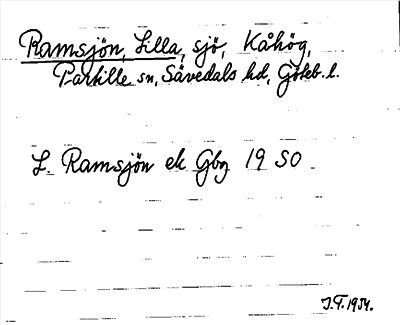 Ramsjön, Lilla, sjö, Kåhög,
Partille sn, Sävedals hd, Göteb. l.
L. Ramsjön ek Gbg 19 SO
J.F. 1954.